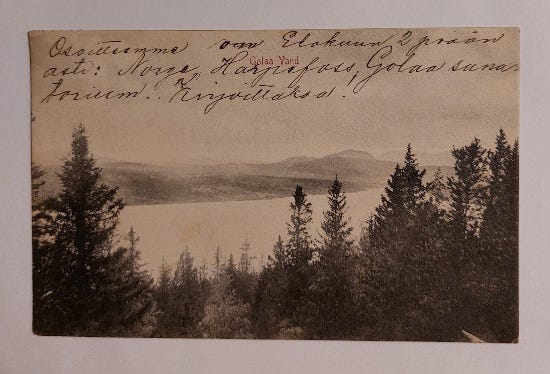 Osoitteemme on Elokuun 2 p:ään
asti: Norge, Harpefoss, Golaa sana-
torium.. Kirjoittakaa.
Golaa Vand